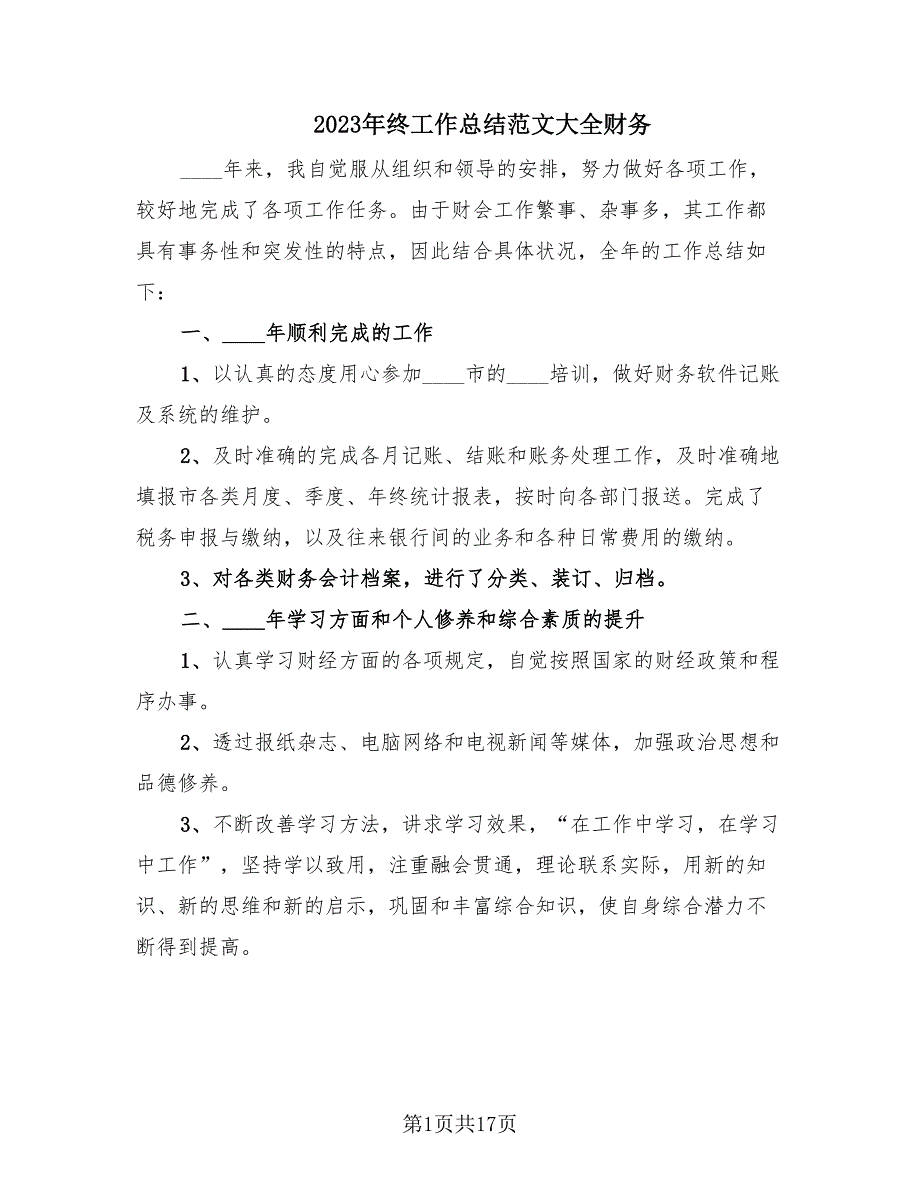 2023年终工作总结范文大全财务
____年来，我自觉服从组织和领导的安排，努力做好各项工作，
较好地完成了各项工作任务。由于财会工作繁事、杂事多，其工作都
具有事务性和突发性的特点，因此结合具体状况，全年的工作总结如
下：
一、____年顺利完成的工作
1、以认真的态度用心参加____市的____培训，做好财务软件记账
及系统的维护。
2、及时准确的完成各月记账、结账和账务处理工作，及时准确地
填报市各类月度、季度、年终统计报表，按时向各部门报送。完成了
税务申报与缴纳，以及往来银行间的业务和各种日常费用的缴纳。
3、对各类财务会计档案，进行了分类、装订、归档。
二、____年学习方面和个人修养和综合素质的提升
1、认真学习财经方面的各项规定，自觉按照国家的财经政策和程
序办事。
2、透过报纸杂志、电脑网络和电视新闻等媒体，加强政治思想和
品德修养。
3、不断改善学习方法，讲求学习效果，“在工作中学习，在学习
中工作”，坚持学以致用，注重融会贯通，理论联系实际，用新的知
识、新的思维和新的启示，巩固和丰富综合知识，使自身综合潜力不
断得到提高。
第1页共17页